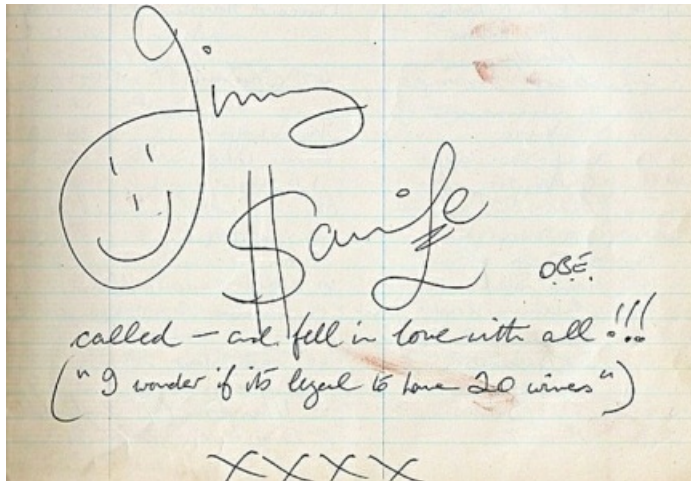 Jimmy
$avile
OBE.
called – and fell in love with all !!!
("I wonder if its legal to have 20 wives")
XXXX